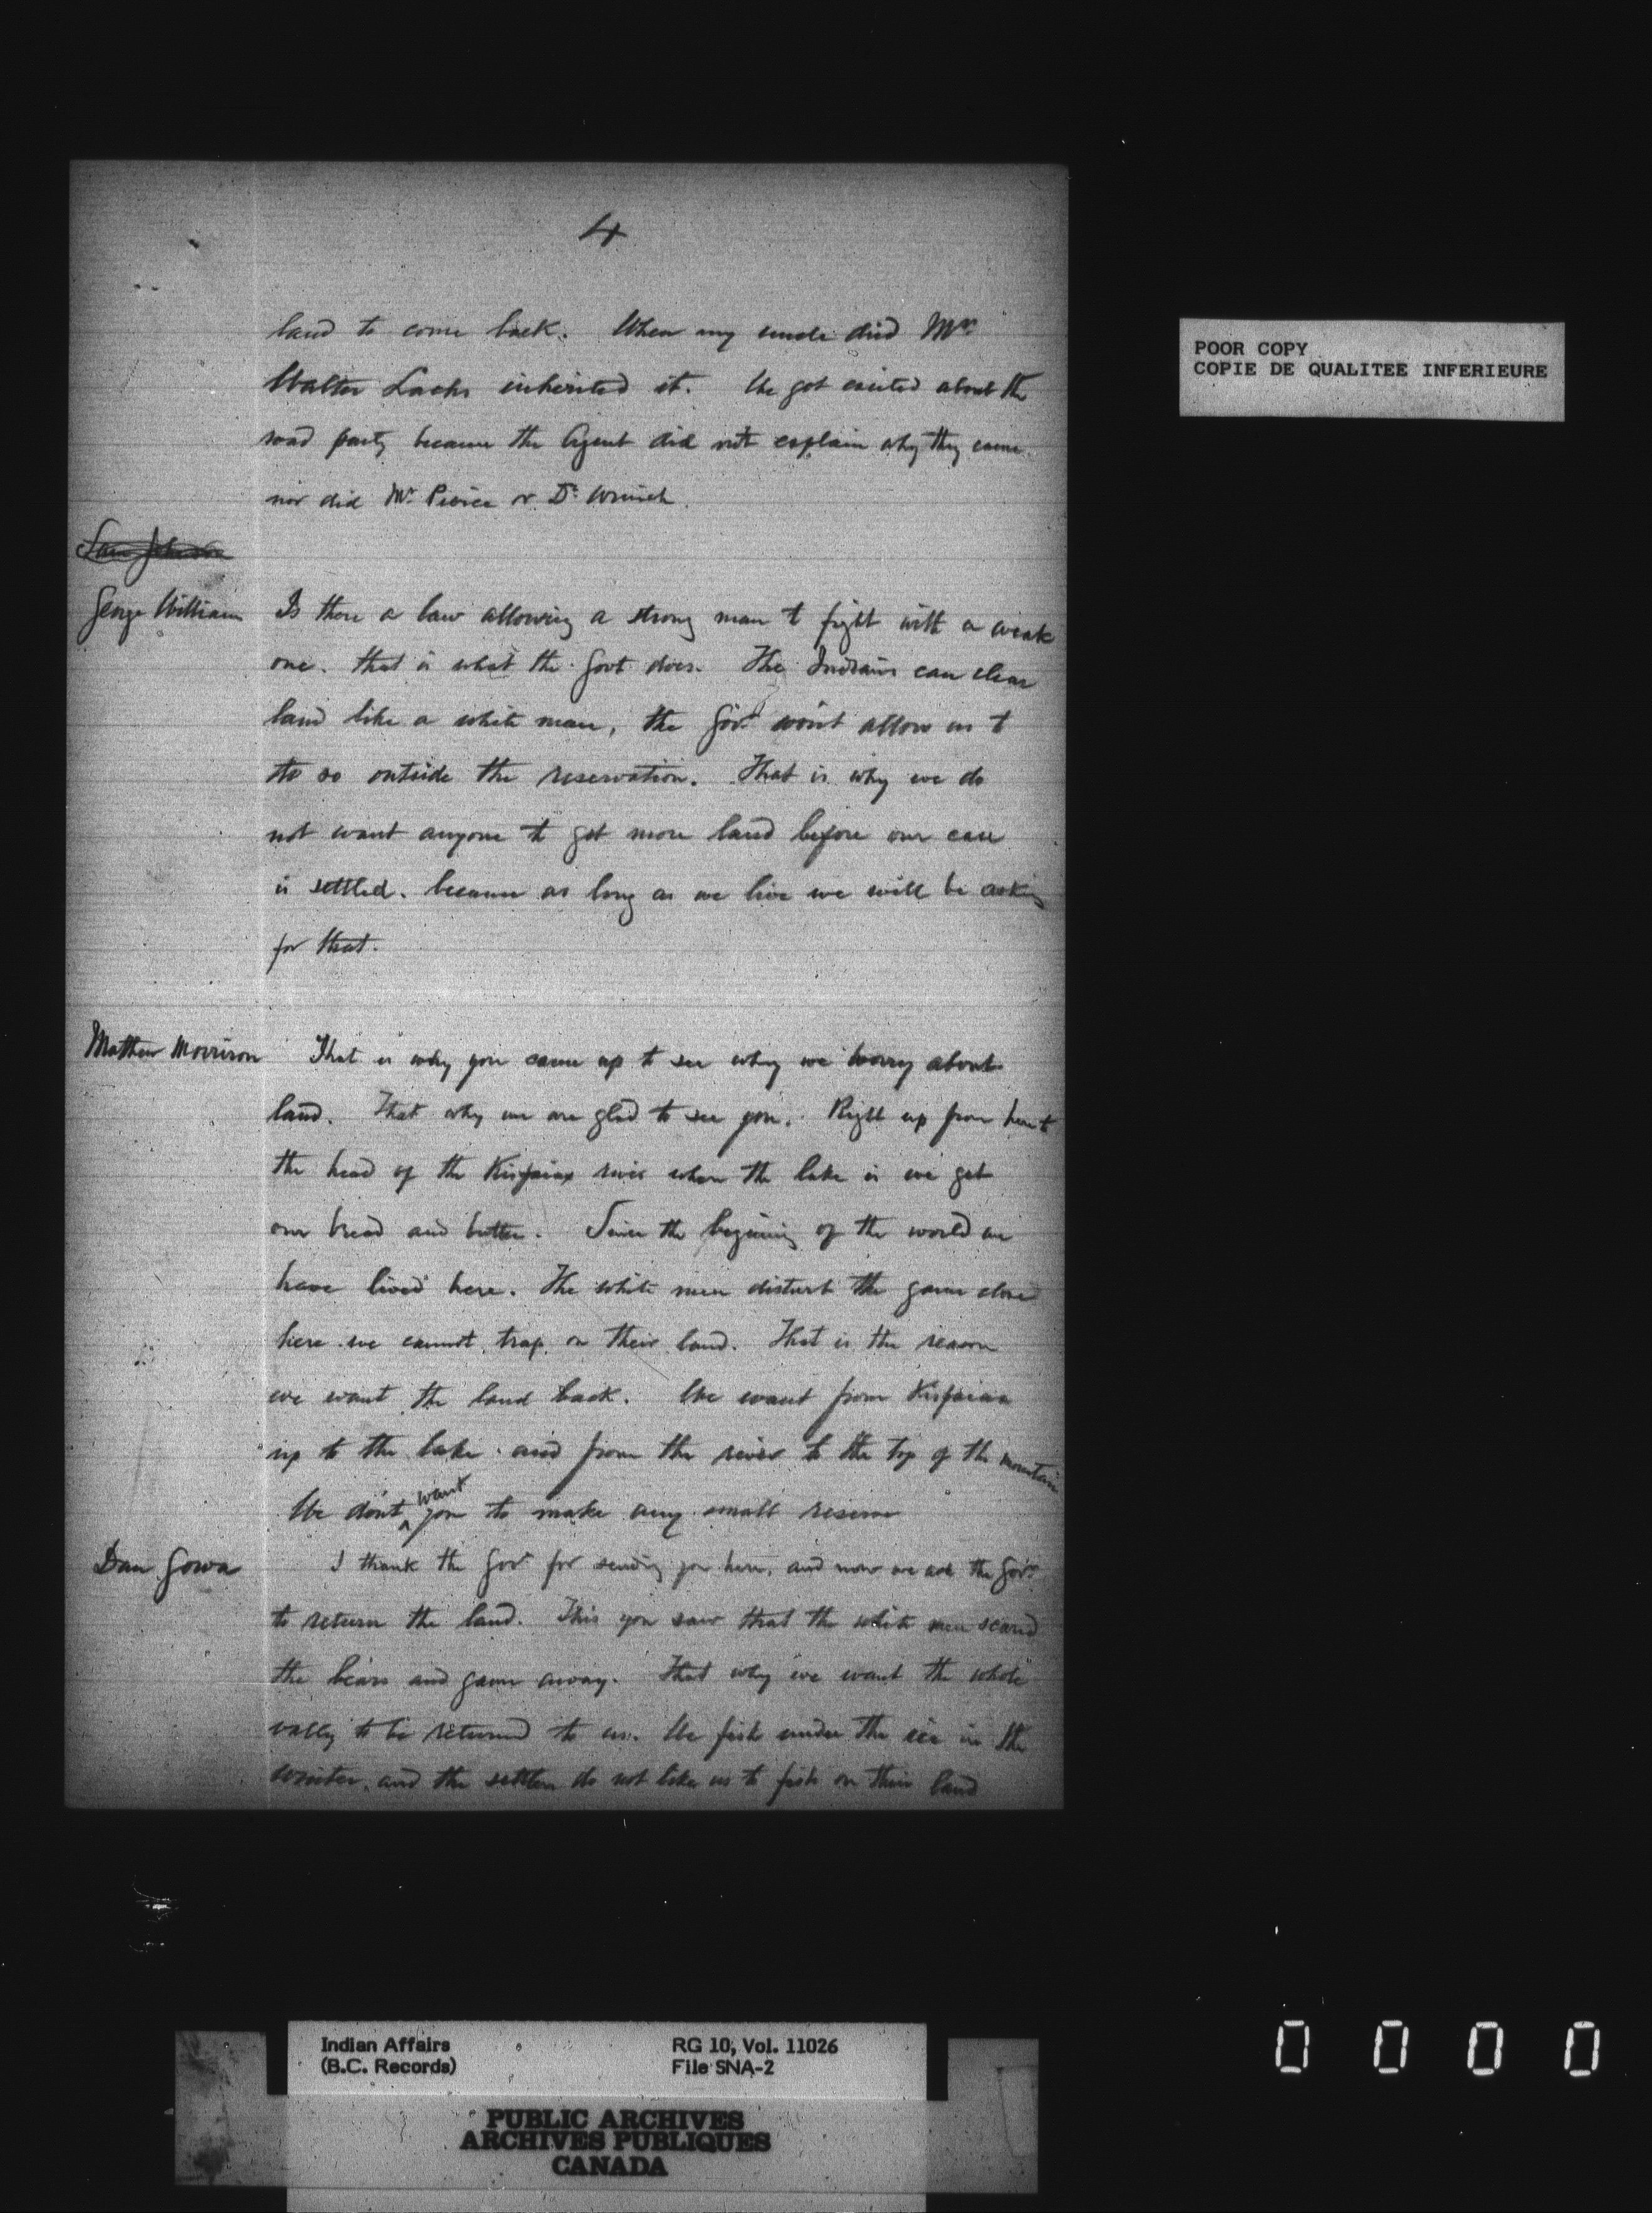 4
land to come back. When my uncle died Mrs
Walter Lachs inherited it. We got excited about the
road party because the Agent did not explain why they came.
nor did Mr Pierce or Dr Wrinch.
Sam Johnson
George William Is there a law allowing a strong man to fight with a weak
one. that is what the Govt does. The Indians can clear
land like a white man, the Govt won't allow us to
do so outside the reservation. That is why we do
not want anyone to get more land before our case
is settled. because as long as we live we will be asking
for that.
Matthew Morrison That is why you came up to see why we worry about
land. That why we are glad to see you. Right up from here to
the head of the Kispiax river where the lake is we get
our bread and butter. Since the begining of the world we
have lived here. The white men disturb the game close
here we cannot trap on their land. That is the reason
we want the land back. We want from Kispiax
up to the lake. and from the river to the top of the mountain
We don't want you to make any small reserve
Dan Gowa I thank the Govt for sending you here, and now we ask the Govt
to return the land. This you saw that the white men scared
the bears and game away. That why we want the whole
valley to be returned to us. We fish under the ice in the
winter, and the settlers do not like us to fish on their land
POOR COPY
COPIE DE QUALITEE INFERIEURE
Indian Affairs RG 10, Vol. 11026
(B.C. Records) File SNA-2
PUBLIC ARCHIVES
ARCHIVES PUBLIQUES
CANADA
0 0 0 0